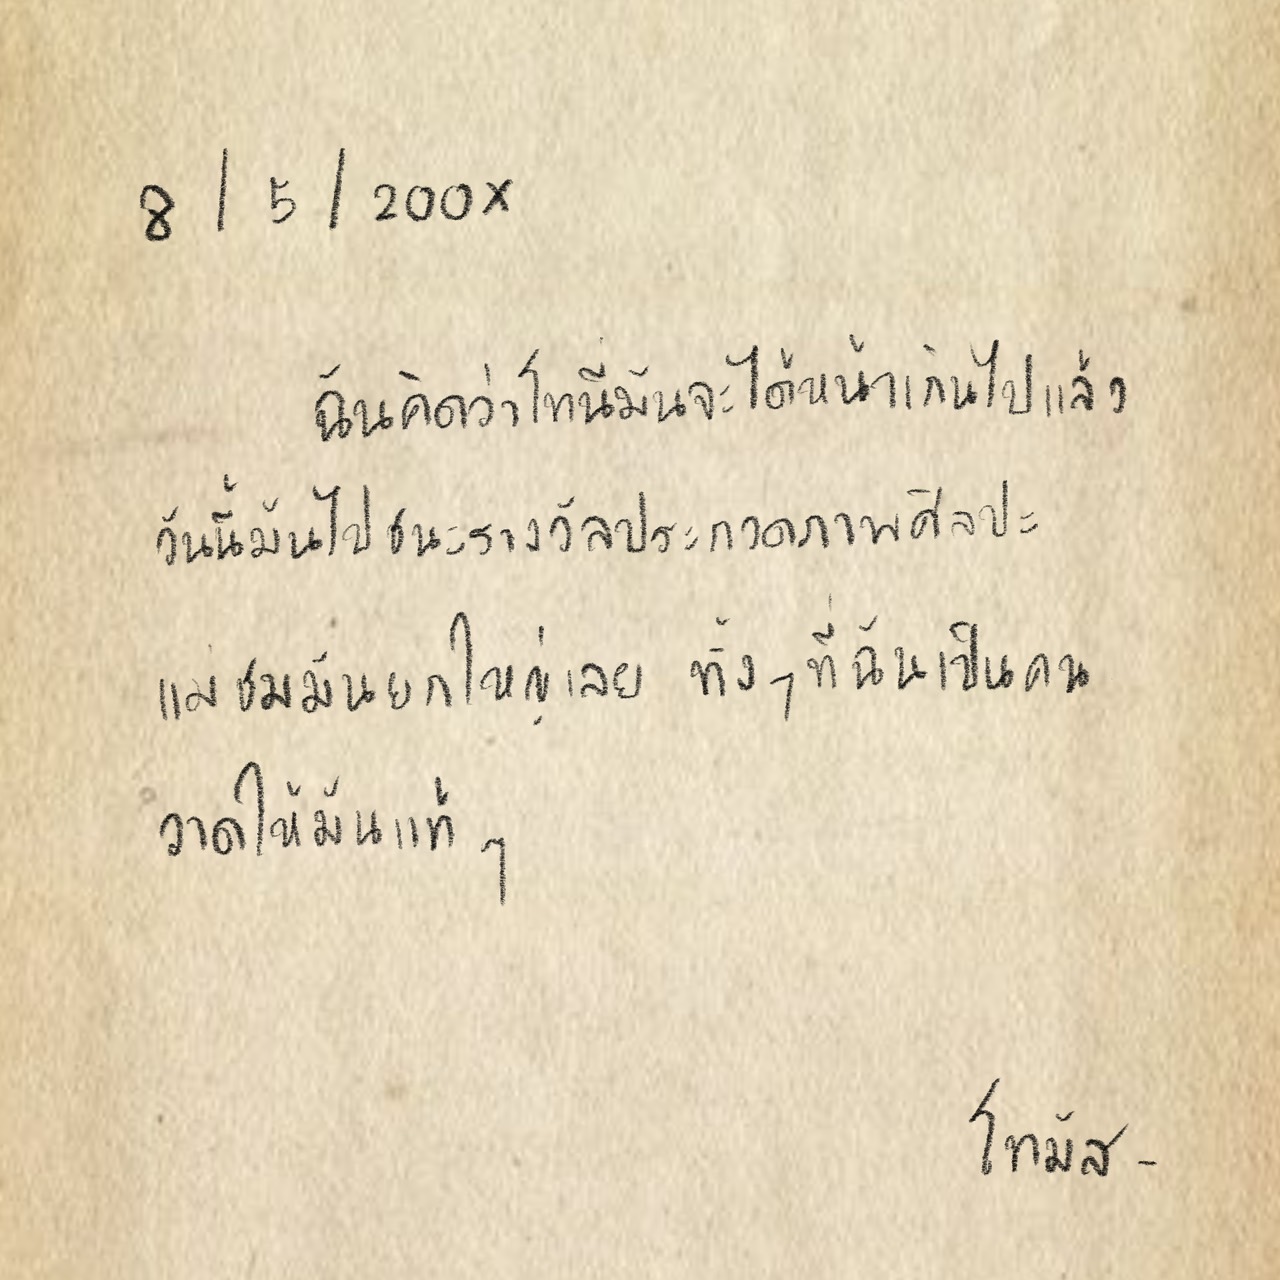 8/5/200X
ฉันคิดว่าโทนี่มันจะได้หน้าเกินไปแล้ว
วันนี้มันไปชนะรางวัลประกวดภาพศิลปะ
แม่ชมมันยกใหญ่เลย ทั้งๆที่ฉันเป็นคน
วาดให้มันแท้ๆ
โทมัส-